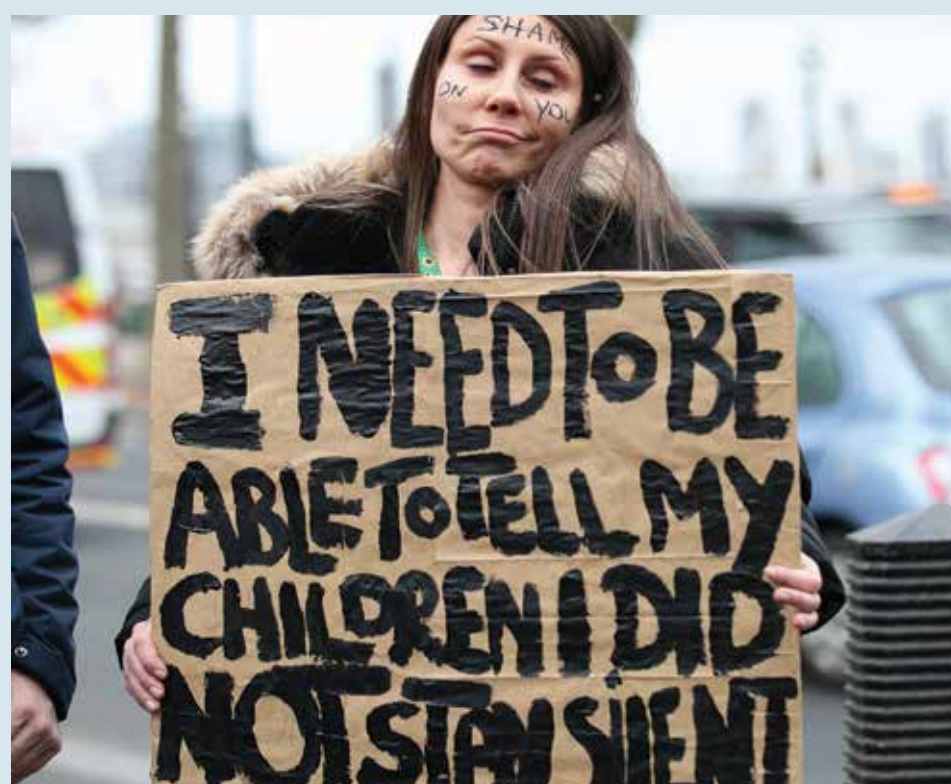 SHAME
ON YOU
I NEED TO BE
ABLE TO TELL MY
CHILDREN I DID
NOT STAY SILENT